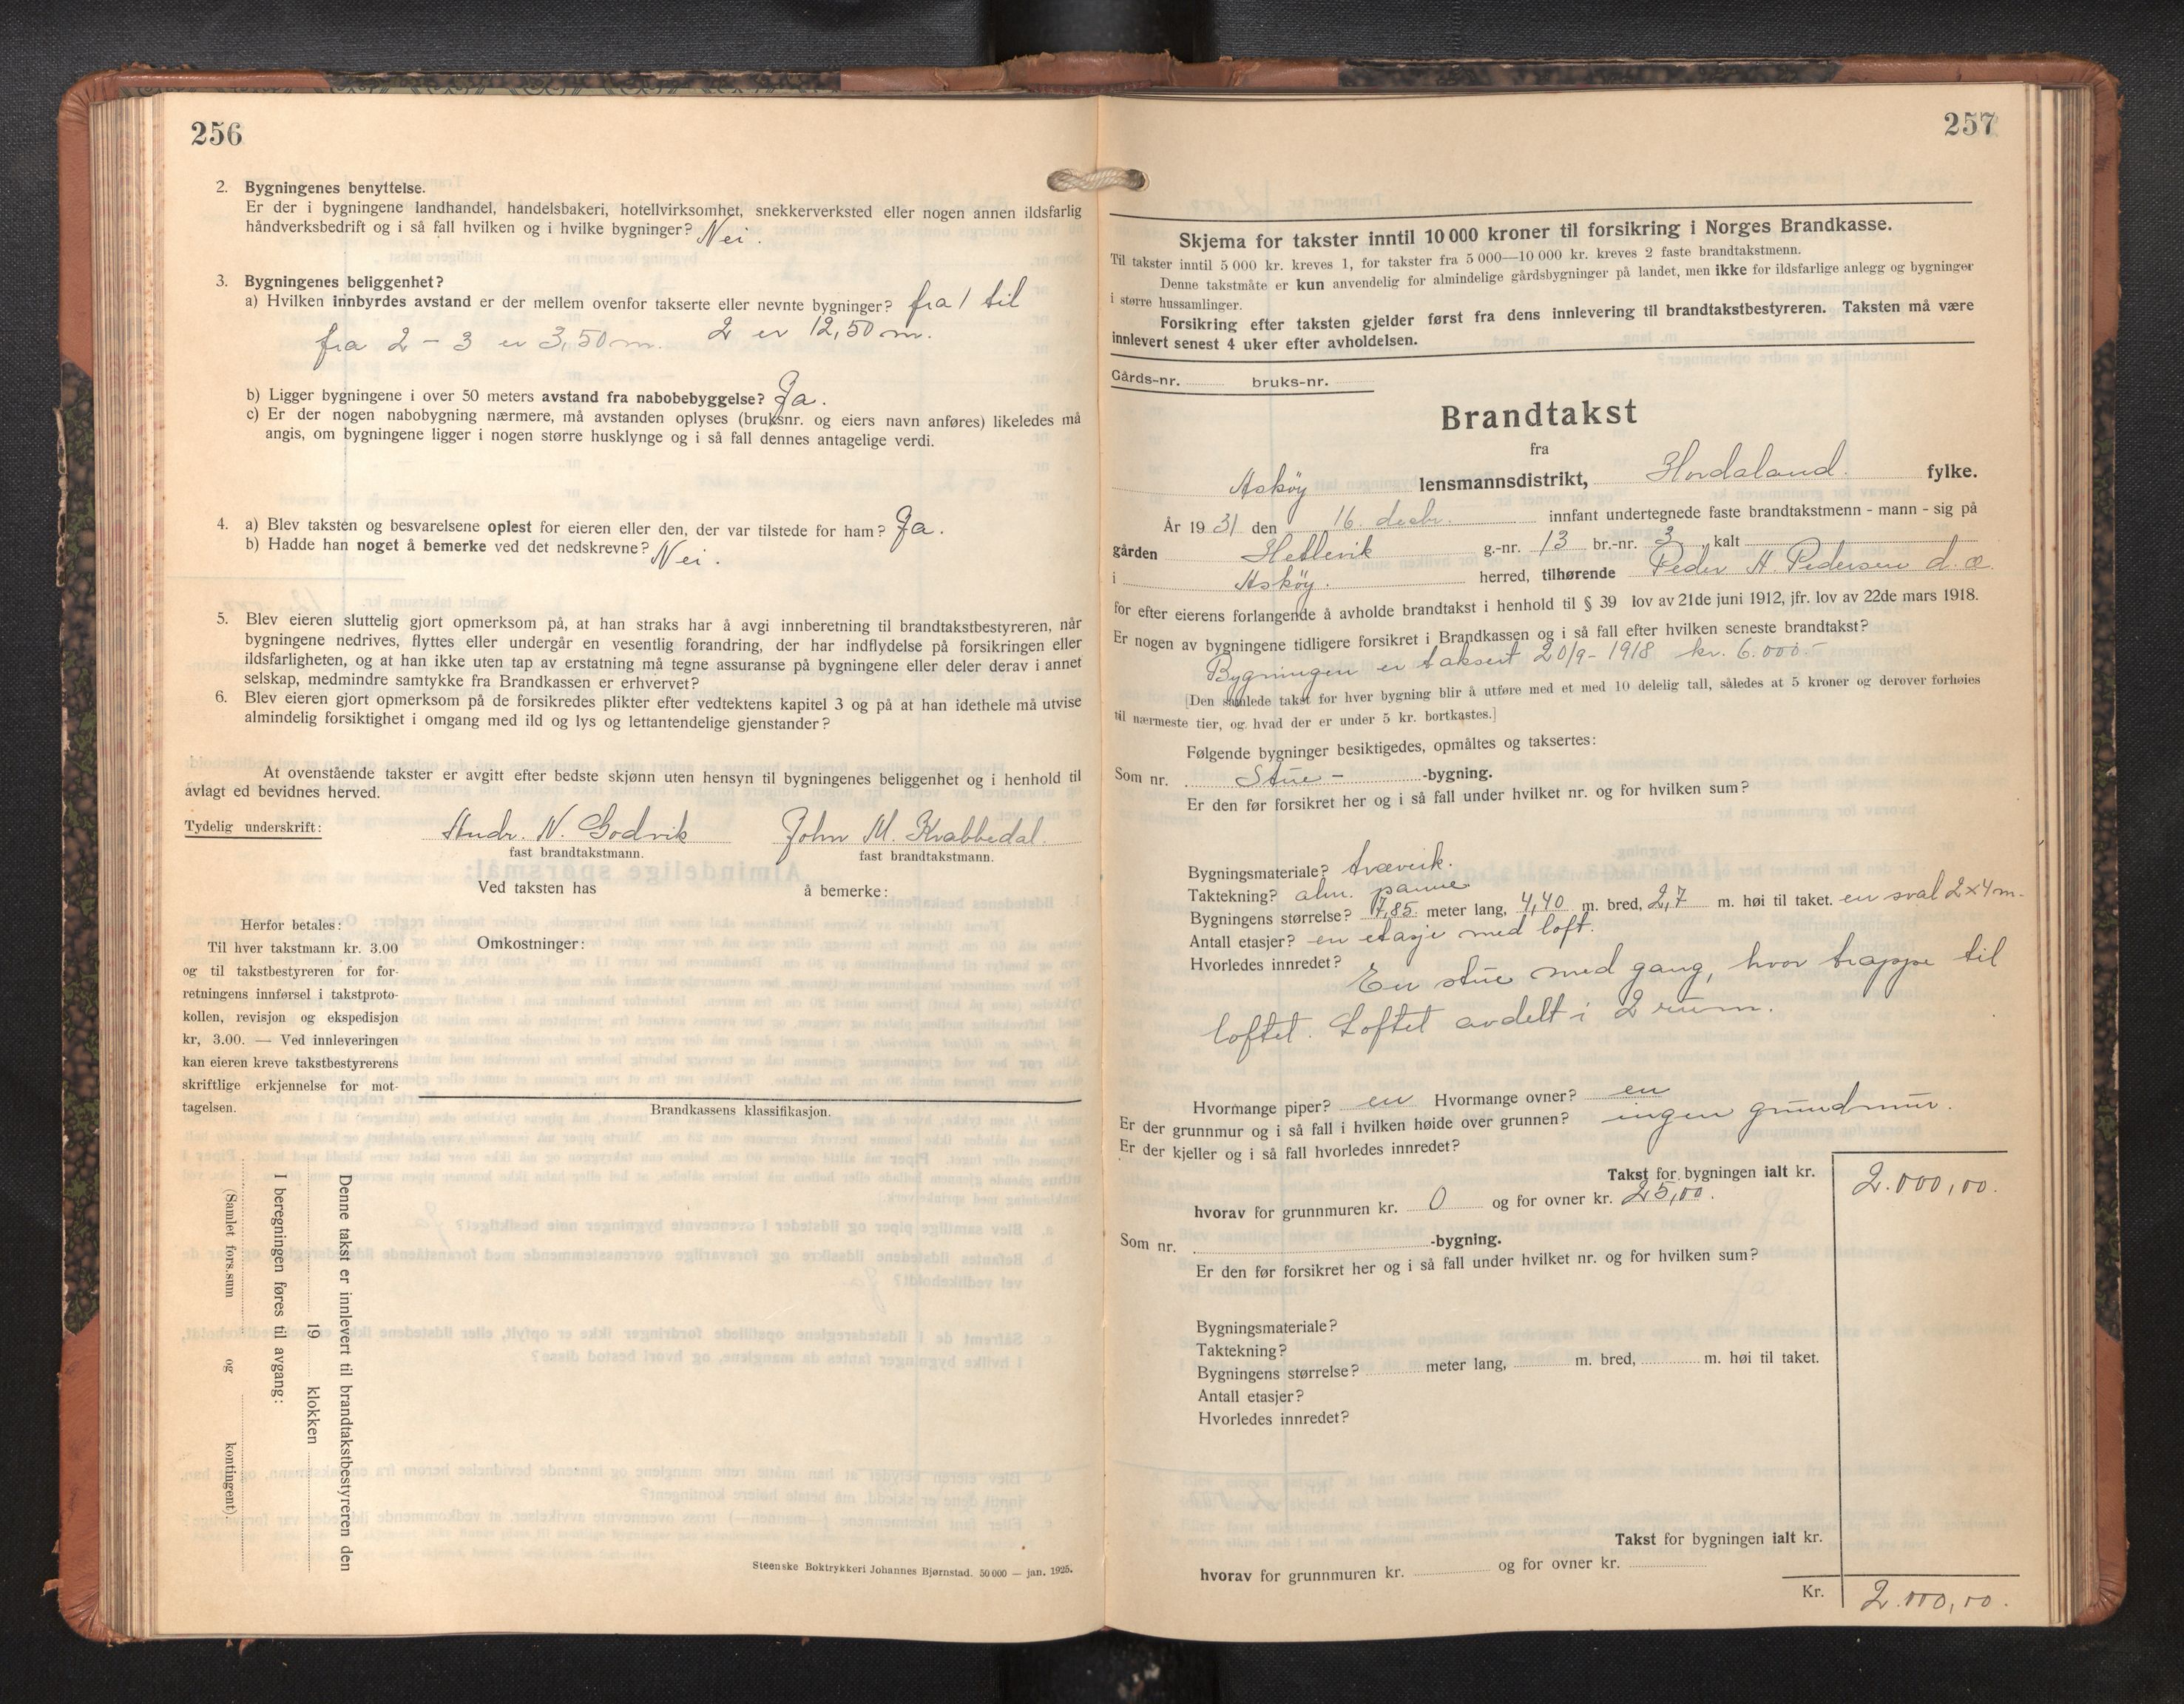 256
2. Bygningenes benyttelse.
Er der i bygningene landhandel, handelsbakeri, hotellvirksomhet, snekkerverksted eller nogen annen ildsfarlig
håndverksbedrift og i så fall hvilken og i hvilke bygninger? Nei.
3. Bygningenes beliggenhet?
a) Hvilken innbyrdes avstand er der mellem ovenfor takserte eller nevnte bygninger? fra 1 til
2 er 12,50 m.
fra 2 - 3 er 3,50 m.
b) Ligger bygningene i over 50 meters avstand fra nabobebyggelse? Ja.
c) Er der nogen nabobygning nærmere, må avstanden oplyses (bruksnr. og eiers navn anføres) likeledes må
angis, om bygningene ligger i nogen større husklynge og i så fall dennes antagelige verdi.
4. a) Blev taksten og besvarelsene oplest for eieren eller den, der var tilstede for ham? Ja.
b) Hadde han noget å bemerke ved det nedskrevne? Nei.
5. Blev eieren sluttelig gjort opmerksom på, at han straks har å avgi innberetning til brandtakstbestyreren, når
bygningene nedrives, flyttes eller undergår en vesentlig forandring, der har indflydelse på forsikringen eller
ildsfarligheten, og at han ikke uten tap av erstatning må tegne assuranse på bygningene eller deler derav i annet
selskap, medmindre samtykke fra Brandkassen er erhvervet?
6. Blev eieren gjort opmerksom på de forsikredes plikter efter vedtektens kapitel 3 og på at han idethele må utvise
almindelig forsiktighet i omgang med ild og lys og lettantendelige gjenstander?
At ovenstående takster er avgitt efter bedste skjønn uten hensyn til bygningenes beliggenhet og i henhold til
avlagt ed bevidnes herved.
Tydelig underskrift: Andr. N. Godvik John M. Krabbedal.
fast brandtakstmann. fast brandtakstmann.
Ved taksten has å bemerke:
Herfor betales:
Til hver takstmann kr. 3.00
og til takstbestyreren for for-
retningens innførsel i takstproto-
kollen, revisjon og ekspedisjon
kr, 3.00. — Ved innleveringen
kan eieren kreve takstbestyrerens
skriftlige erkjennelse for mot-
tagelsen.
Omkostninger:
Brandkassens klassifikasjon.
Denne takst er innlevert til brandtakstbestyreren den
19 klokken
I beregningen føres til avgang:
(Samlet fors.sum og kontingent).
Steenske Boktrykkeri Johannes Bjørnstad. 50 000 — jan. 1925.
257
Skjema for takster inntil 10 000 kroner til forsikring i Norges Brandkasse.
Til takster inntil 5 000 kr. kreves 1, for takster fra 5 000—10 000 kr. kreves 2 faste brandtakstmenn.
Denne takstmåte er kun anvendelig for almindelige gårdsbygninger på landet, men ikke for ildsfarlige anlegg og bygninger
i større hussamlinger.
Forsikring efter taksten gjelder først fra dens innlevering til brandtakstbestyreren. Taksten må være
innlevert senest 4 uker efter avholdelsen.
Gårds-nr. bruks-nr.
Brandtakst
fra
Askøy lensmannsdistrikt, Hordaland. fylke.
År 1931 den 16. decbr. innfant undertegnede faste brandtakstmenn - mann - sig på
gården Hetlevik g.-nr. 13 br.-nr. 3, kalt
i Askøy. herred, tilhørende Peder A. Pedersen d.æ.
for efter eierens forlangende å avholde brandtakst i henhold til § 39 lov av 21de juni 1912, jfr. lov av 22de mars 1918.
Er nogen av bygningene tidligere forsikret i Brandkassen og i så fall efter hvilken seneste brandtakst?
Bygningen er taksert 20/9 - 1918 kr. 6.000.-
[Den samlede takst for hver bygning blir å utføre med et med 10 delelig tall, således at 5 kroner og derover forhøies
til nærmeste tier, og hvad der er under 5 kr. bortkastes.]
Følgende bygninger besiktigedes, opmåltes og taksertes:
Som nr. Stue - -bygning.
Er den før forsikret her og i så fall under hvilket nr. og for hvilken sum?
Bygningsmateriale? træverk.
Taktekning? alm. panne
Bygningens størrelse? 7,85 meter lang, 4,40 m. bred, 2,7 m. høi til taket. en sval 2x4 m.
Antall etasjer? en etasje med loft.
Hvorledes innredet?
En stue med gang, hvor trappe til
loftet. Loftet avdelt i 2 rum.
Hvormange piper? en Hvormange ovner? en
Er der grunnmur og i så fall i hvilken høide over grunnen? ingen grundmur.
Er der kjeller og i så fall hvorledes innredet?
Takst for bygningen ialt kr. 2.000,00.
hvorav for grunnmuren kr. 0 og for ovner kr. 25,00.
Som nr. -bygning.
Er den før forsikret her og i så fall under hvilket nr. og for hvilken sum?
Bygningsmateriale?
Taktekning?
Bygningens størrelse? meter lang, m. bred, m. høi til taket.
Antall etasjer?
Hvorledes innredet?
Takst for bygningen ialt kr.
hvorav for grunnmuren kr. og for ovner kr.
Kr. 2.000,00.